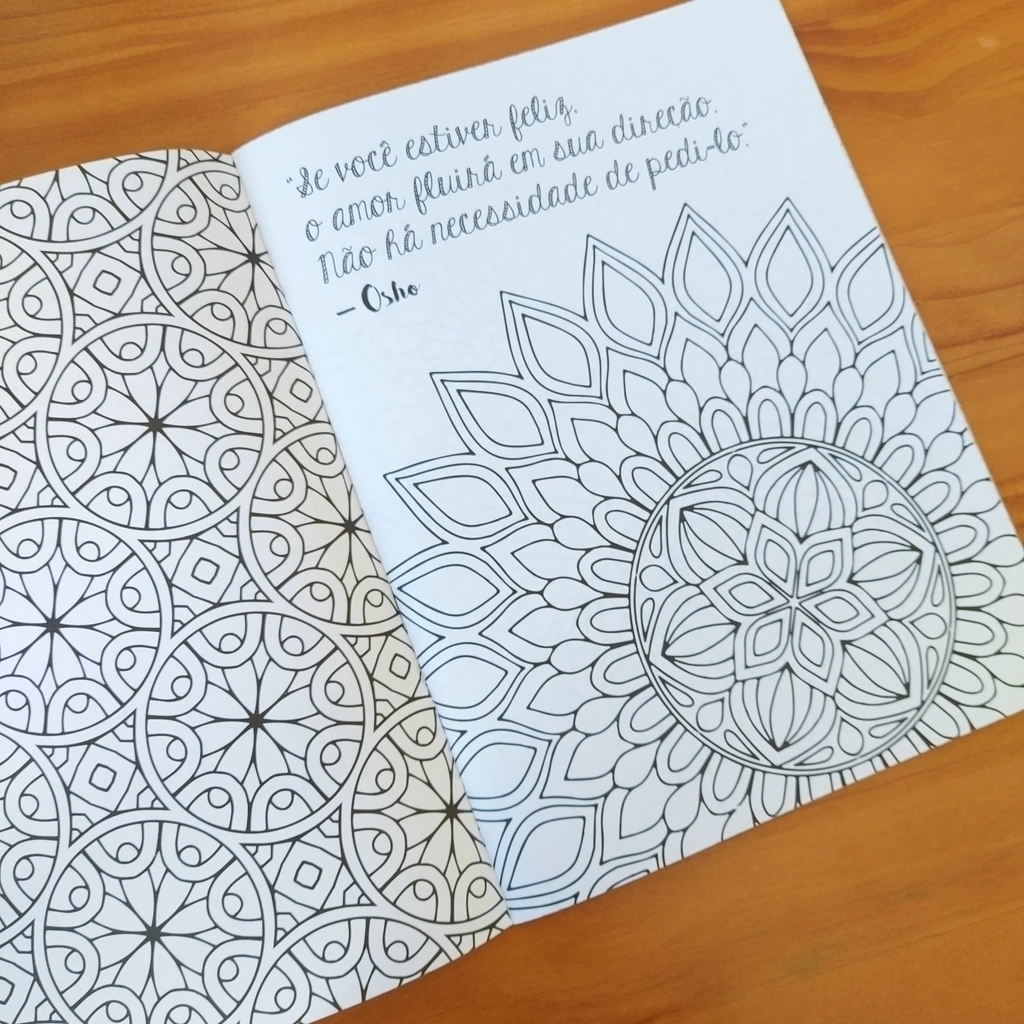 "Se você estiver feliz,
o amor fluirá em sua direção.
Não há necessidade de pedi-lo."
— Osho